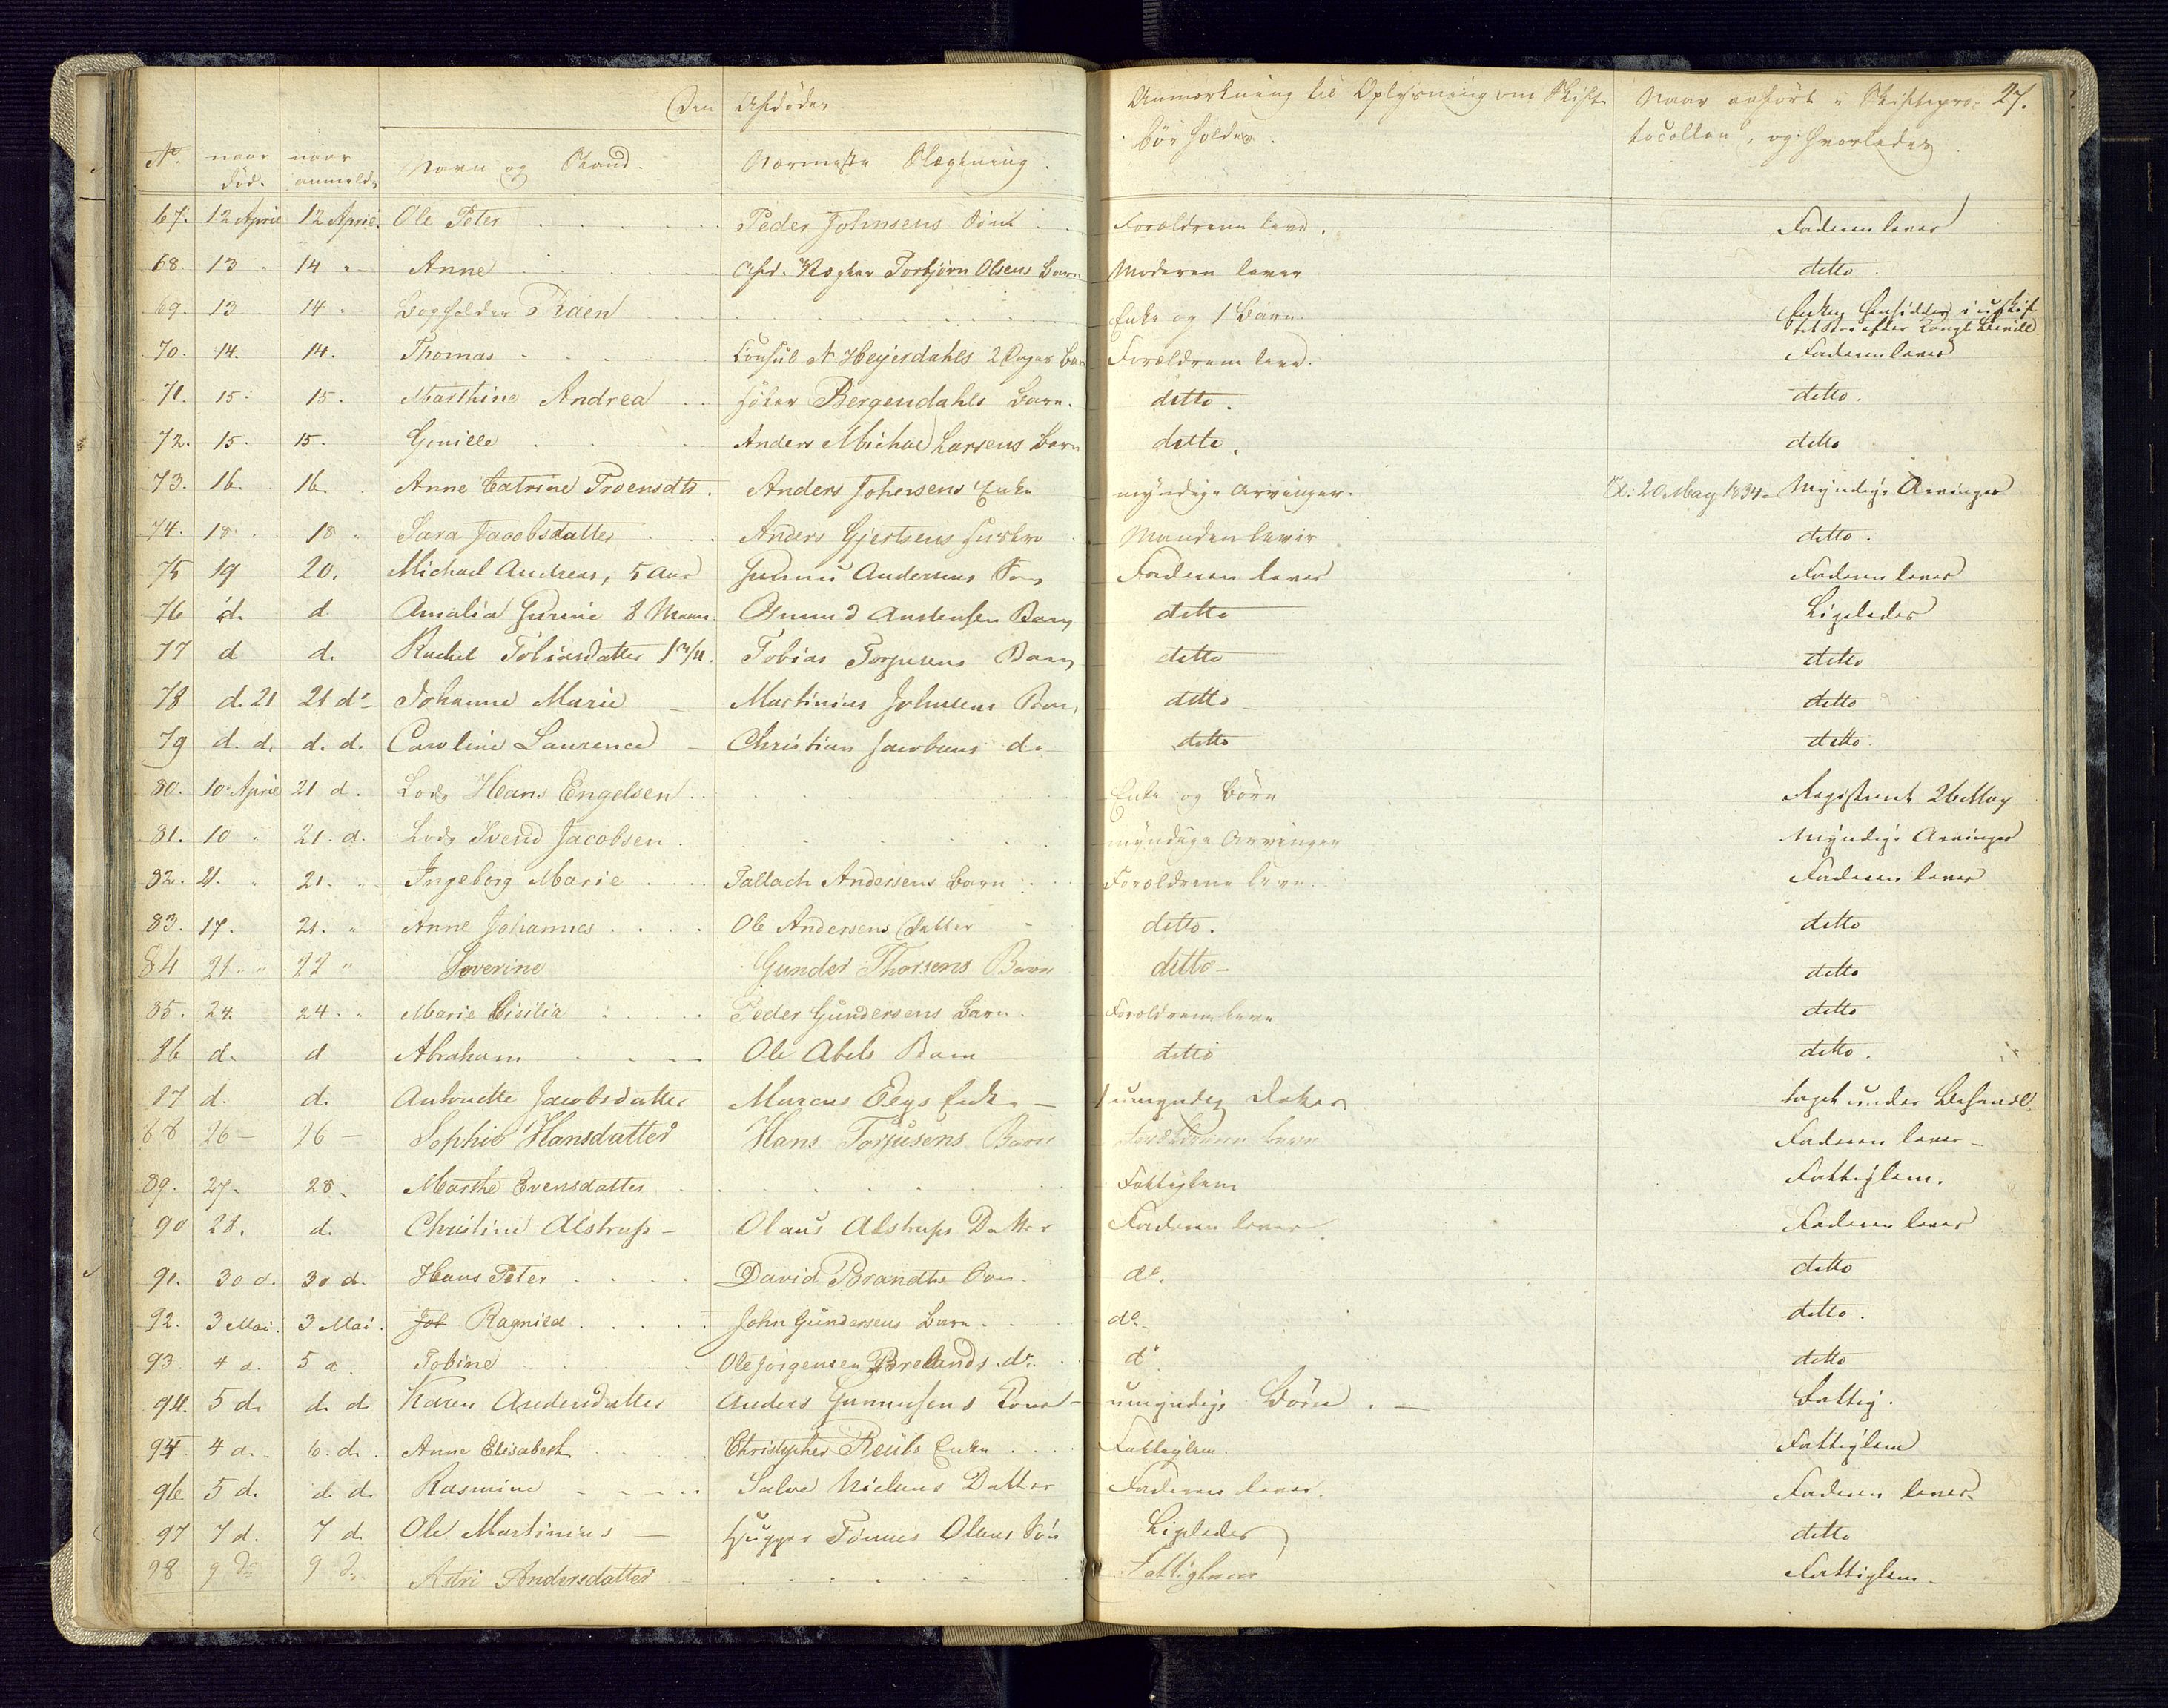 Den Afdødes
Anmærkning til Oplysning om Skifte
bør holdes.
Naar anført i Skiftepro-
tocollen, og hvorledes
27.
No. naar død. naar anmeldt Navn og Stand. Nærmeste Slægtning.
67. 12 April 12 April. Ole Peter Peder Johnsens Sön Forældrene leve. Faderen lever
68. 13 14 Anne Afd. Torbjörn Olsens Barn Moderen lever ditto
69. 13 14 Bogholder Thaen Enke og 1 Barn. Enken hensidder i uskif-
70. 14. 14. Thomas Consul N. Heyerdahls 2 Dages Barn Forældrene leve. Faderen lever
71. 15. 15. Marthine Andrea Bergendahls Barn. ditto. ditto.
72. 15. 15. Gunille Anders Michael Larsens Barn ditto. ditto
73. 16. 16 Anne Catrine Troensdtr. Anders Johnsens Enke myndige Arvinger. 20 May 1834 Myndige Arvinger
74. 18. 18 Sara Jacobsdatter Anders Gjertsens Hustru Manden lever ditto.
75 19 20. Michael Andreas, 5 Aar Gunnu Andersens Søn Faderen lever Faderen lever
76 d. d. Amalia Gurine 8 Maan. Osmund Anstensen Barn ditto Ligeledes
77 d d. Rachel Tobiasdatter Tobias Torjusens Barn ditto ditto
78 d. 21 21 do Johanne Marie Martinius Johnsens Barn ditto ditto
79 d. d. d. d. Caroline Laurence Christian Jacobsens do ditto ditto.
80. 10 April 21 d. Lods Hans Engelsen Enke og Börn Registreret 26 May
81. 10 21. d. Lods Svend Jacobsen myndige Arvinger Myndige Arvinger
82. 21. 21. Ingeborg Marie Tallach Andersens Barn Forældrene leve. Faderen lever
83. 17. 21. Anne Johannes Ole Andersens Datter ditto. ditto
84 21 22 Severine Gunder Thorsens Barn ditto ditto
85. 24. 24. Marie Cisilia Peder Gundersens Barn. Forældrene leve ditto
86 d. d Abraham Ole Abels Barn ditto ditto.
87 d. d. Antonette Jacobsdatter Marcus Enke 1 umyndig Datter taget under Behandl.
88 26 26 Sophie Hansdatter Hans Torjusens Barn Forældrene leve Faderen lever
89. 27. 28. Marthe Evensdatter Fattiglem Fattiglem.
90 28. d. Christine Alstrup Olaus Alstrups Datter Faderen lever Faderen lever
91. 30 d. 30 d. Hans Peter David Brandts Søn. do. ditto
92. 3 Mai. 3 Mai. Job Ragnild John Gundersens Barn do ditto.
93. 4 d. 5 d. Tobine Ole Jörgensen Brelands do. do ditto
94. 5 d. d. d. Karen Andersdatter Anders Gunnusens Kone umyndige Börn. Fattig.
94. 4 d. 6. d. Anne Elisabeth Christopher Enke Fattiglem. Fattiglem
96 5 d. d. d. Rasmine Salve Nielsens Datter Faderen lever. Faderen lever
97 7 d. 7 d. Ole Martinius Tönnes Olsens Sön Ligeledes ditto
98 9 do 9 d. Astri Andersdatter Fattiglem Fattiglem